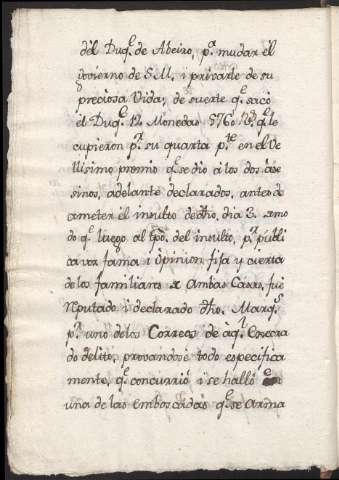 del Duq.e de Abeiro, p.a mudar el
govierno de S.M, i privarle de su
preciosa Vida; de suerte q.e sacó
el Duq.e 12 Monedas q.e le
cupieron p.r su quarta p.te en el Ve
llisimo premio q.e se dio á los dos Ase
sinos, adelante declarados, antes de
ameter el insulto de dho, dia 3. amo
do q.e luego al tpo. del insulto, p.r publi
ca voz fama i opinion fija y cierta
de los familiares de Ambas Casas, fue
Reputado i declarado dho. Marq.s
p.r uno de los Correos de aq.l Execra
do delito, provandose todo especifica
mente, q.e concurrió i se halló en
una de las emboscadas q.e se Arma